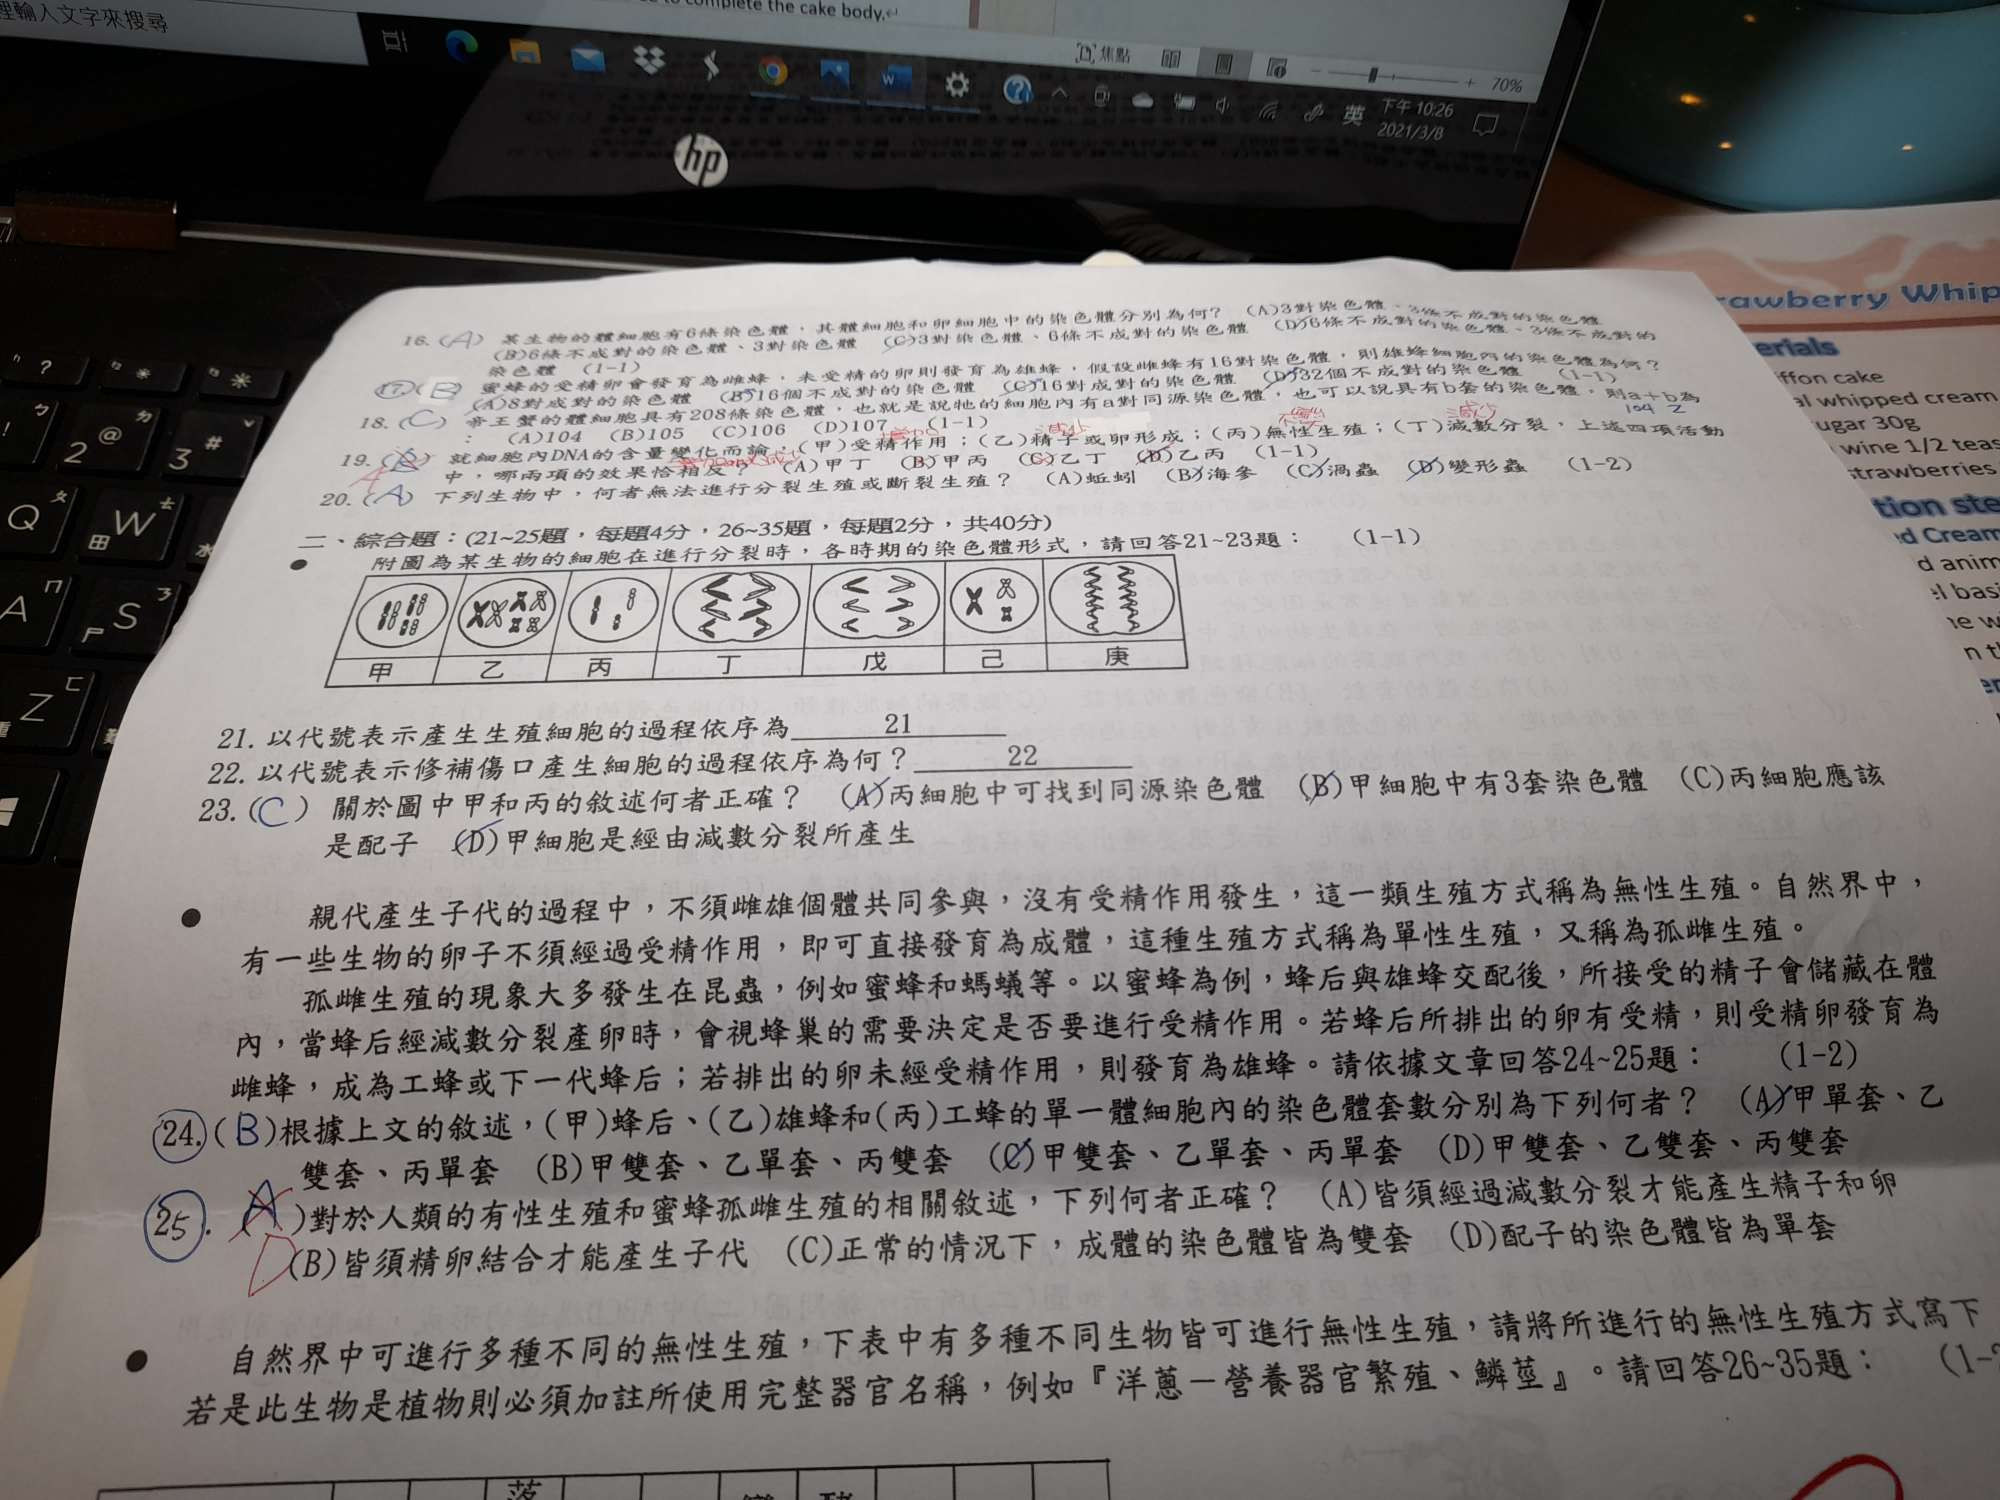 裡輸入文字來搜尋
to complete the cake body.
焦點
70%
英
下午 10:26
2021/3/8
hp
rawberry Whip
erials
ffon cake
al whipped cream
ugar 30g
wine 1/2 teas
strawberries
tion ste
d Cream
d anim
el basi
ne w
n th
16.(A) 某生物的體細胞有6條染色體,其體細胞和卵細胞中的染色體分別為何? (A)3對染色體、3條不成對的染色體
(B)6條不成對的染色體、3對染色體 (C)3對染色體、6條不成對的染色體 (D)6條不成對的染色體、3條不成對的
染色體 (1-1)
17.(B) 蜜蜂的受精卵會發育為雌蜂,未受精的卵則發育為雄蜂,假設雌蜂有16對染色體,則雄蜂細胞內的染色體為何?
(A)8對成對的染色體 (B)16個不成對的染色體 (C)16對成對的染色體 (D)32個不成對的染色體 (1-1)
18.(C) 帝王蟹的體細胞具有208條染色體,也就是說牠的細胞內有a對同源染色體,也可以說具有b套的染色體,則a+b為
104 2
: (A)104 (B)105 (C)106 (D)107 (1-1)
增加 減少 不變 減少
19.( ) 就細胞內DNA的含量變化而論,(甲)受精作用;(乙)精子或卵形成;(丙)無性生殖;(丁)減數分裂,上述四項活動
A 中,哪兩項的效果恰相反? (A)甲丁 (B)甲丙 (C)乙丁 (D)乙丙 (1-1)
20.(A) 下列生物中,何者無法進行分裂生殖或斷裂生殖? (A)蚯蚓 (B)海參 (C)渦蟲 (D)變形蟲 (1-2)
二、綜合題:(21~25題,每題4分,26~35題,每題2分,共40分)
● 附圖為某生物的細胞在進行分裂時,各時期的染色體形式,請回答21~23題: (1-1)
甲 乙 丙 丁 戊 己 庚
21. 以代號表示產生生殖細胞的過程依序為 21
22. 以代號表示修補傷口產生細胞的過程依序為何? 22
23.(C) 關於圖中甲和丙的敘述何者正確? (A)丙細胞中可找到同源染色體 (B)甲細胞中有3套染色體 (C)丙細胞應該
是配子 (D)甲細胞是經由減數分裂所產生
● 親代產生子代的過程中,不須雌雄個體共同參與,沒有受精作用發生,這一類生殖方式稱為無性生殖。自然界中,
有一些生物的卵子不須經過受精作用,即可直接發育為成體,這種生殖方式稱為單性生殖,又稱為孤雌生殖。
孤雌生殖的現象大多發生在昆蟲,例如蜜蜂和螞蟻等。以蜜蜂為例,蜂后與雄蜂交配後,所接受的精子會儲藏在體
內,當蜂后經減數分裂產卵時,會視蜂巢的需要決定是否要進行受精作用。若蜂后所排出的卵有受精,則受精卵發育為
雌蜂,成為工蜂或下一代蜂后;若排出的卵未經受精作用,則發育為雄蜂。請依據文章回答24~25題: (1-2)
24.(B)根據上文的敘述,(甲)蜂后、(乙)雄蜂和(丙)工蜂的單一體細胞內的染色體套數分別為下列何者? (A)甲單套、乙
雙套、丙單套 (B)甲雙套、乙單套、丙雙套 (C)甲雙套、乙單套、丙單套 (D)甲雙套、乙雙套、丙雙套
25.(A)對於人類的有性生殖和蜜蜂孤雌生殖的相關敘述,下列何者正確? (A)皆須經過減數分裂才能產生精子和卵
D (B)皆須精卵結合才能產生子代 (C)正常的情況下,成體的染色體皆為雙套 (D)配子的染色體皆為單套
● 自然界中可進行多種不同的無性生殖,下表中有多種不同生物皆可進行無性生殖,請將所進行的無性生殖方式寫下
若是此生物是植物則必須加註所使用完整器官名稱,例如『洋蔥-營養器官繁殖、鱗莖』。請回答26~35題: (1-2
落